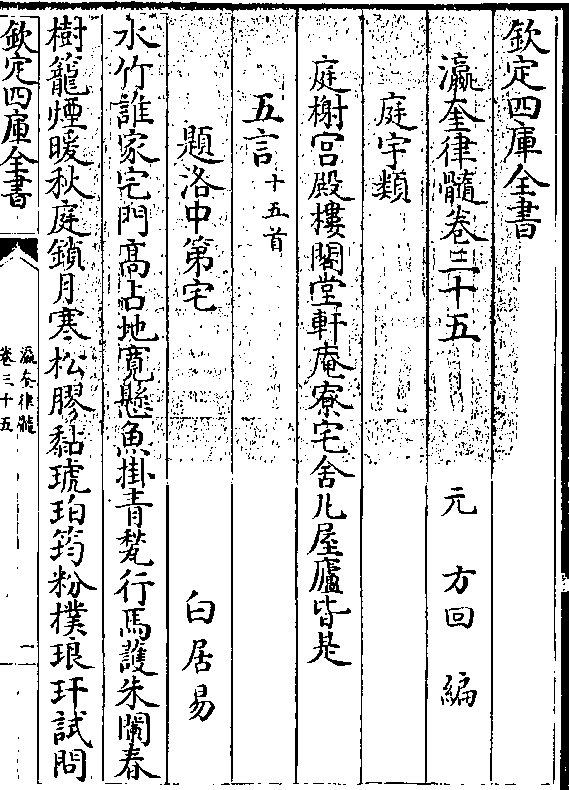 欽定四庫全書
瀛奎律髓卷三十五
元 方回 編
庭宇類
庭榭宫殿樓閣堂軒庵寮宅舍凡屋廬皆是
五言十五首
題洛中第宅
白居易
水竹誰家宅門高占地寛懸魚掛青甃行馬護朱闌春
樹籠煙暖秋庭鎖月寒松膠黏琥珀筠粉撲琅玕試問
欽定四庫全書
瀛奎律髓
卷三十五
一